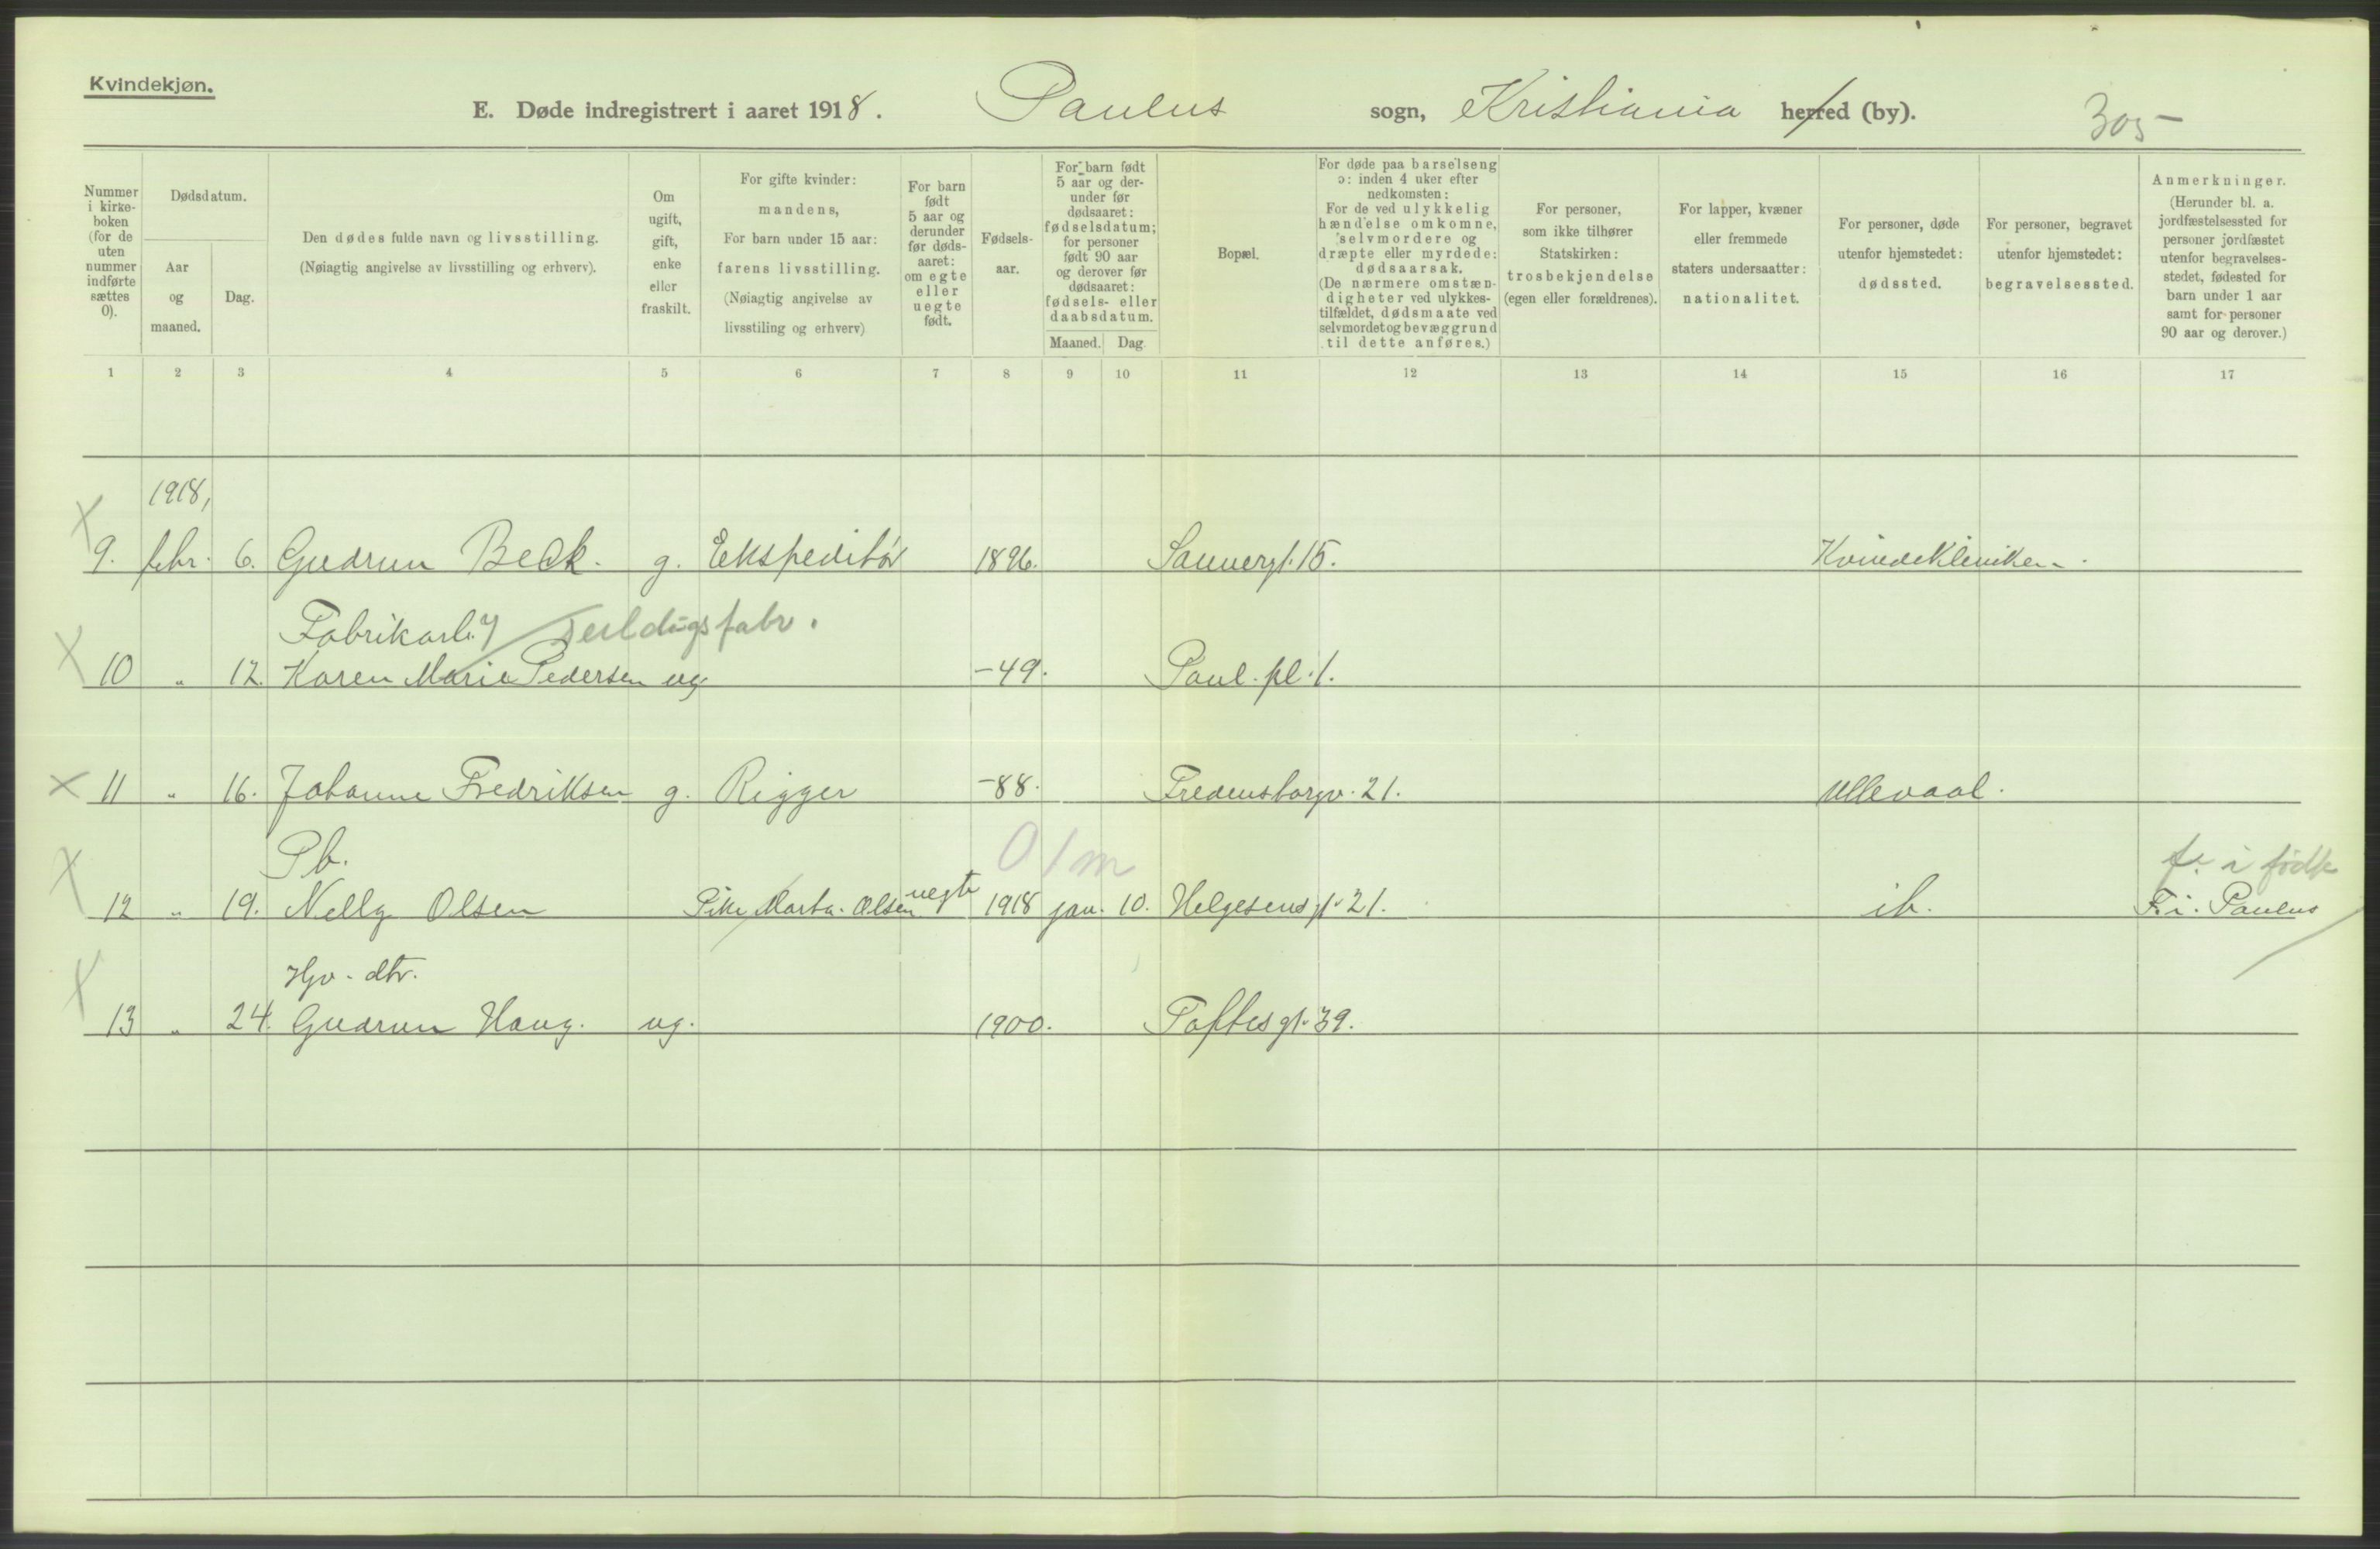 Kvindekjøn.
E. Døde indregistrert i aaret 1918. Paulus sogn, Kristiania herred (by). 305
Nummer i kirke- boken (for de uten nummer indførte sættes 0).
Dødsdatum.
Aar og maaned.
Dag.
Den dødes fulde navn og livsstilling. (Nøiagtig angivelse av livsstilling og erhverv).
Om ugift, gift, enke eller fraskilt.
For gifte kvinder: mandens, For barn under 15 aar: farens livsstilling. (Nøiagtig angivelse av livsstiling og erhverv)
For barn født 5 aar og derunder før døds- aaret: om egte eller uegte født.
Fødsels- aar.
For barn født 5 aar og der- under før dødsaaret: fødselsdatum; for personer født 90 aar og derover før dødsaaret: fødsels- eller daabsdatum.
Maaned. Dag.
Bopæl.
For døde paa barselseng ɔ: inden 4 uker efter nedkomsten: For de ved ulykkelig hændelse omkomne, selvmordere og dræpte eller myrdede: dødsaarsak. (De nærmere omstæn- digheter ved ulykkes- tilfældet, dødsmaate ved selvmordet og bevæggrund til dette anføres.)
For personer, som ikke tilhører Statskirken: trosbekjendelse (egen eller forældrenes).
For lapper, kvæner eller fremmede staters undersaatter: nationalitet.
For personer, døde utenfor hjemstedet: dødssted.
For personer, begravet utenfor hjemstedet: begravelsessted.
Anmerkninger. (Herunder bl. a. jordfæstelsessted for personer jordfæstet utenfor begravelses- stedet, fødested for barn under 1 aar samt for personer 90 aar og derover.)
1 2 3 4 5 6 7 8 9 10 11 12 13 14 15 16 17
1918,
9. febr. 6. Gudrun Beck. g. Ekspeditør 1896. Sannergt. 15. Kvindekliniken.
Fabrikarb. Seildugsfabr.
10 " 12. Karen Marie Pedersen ug. -49. Paul. pl. 1.
11 " 16. Johanne Fredriksen g. Rigger -88. Fredensborgv. 21. Ullevaal.
Pb. 0/m f. i
12 " 19. Nelly Olsen Pike Marta Olsen uegte 1918 jan. 10. Helgesens gt. 21. ib. F. i. Paulus
Hjv. dtr.
13 " 24. Gudrun Haug. ug. 1900. Toftes gt. 39.